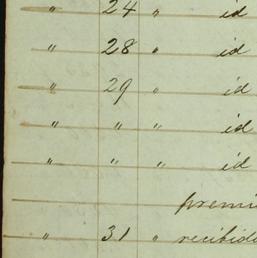 " 24 " id
" 28 " id
" 29 " id
" " " id
" " " id
premi
" 31 " recibido